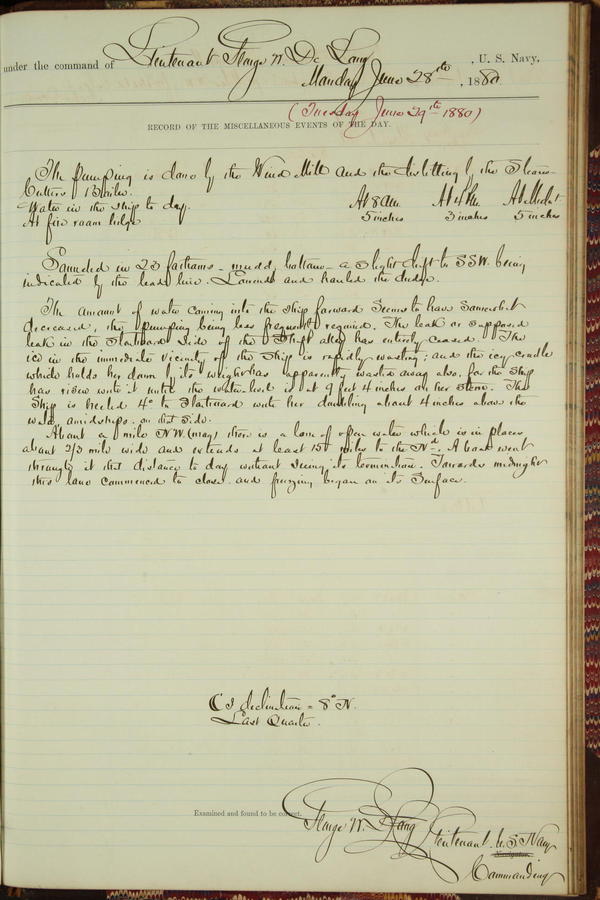 under the command of Lieutenant George W. De Long, U. S. Navy,
Monday June 28th, 1880
(Tuesday June 29th 1880)
RECORD OF THE MISCELLANEOUS EVENTS OF THE DAY.
The pumping is done by the Wind Mill and the distilling by the Steam-
Cutter's Boiler.
Water in the ship to day. At 8 am. At 4 Pm. At Midt.
At fire room bilge 5 inches 3 inches 5 inches
Sounded in 23 fathoms - mudd bottom - a slight drift to SSW. being
indicated by the lead line. Lowered and hauled the dredge.
The amount of water coming into the ship forward seems to have somewhat
decreased, the pumping being less frequently required. The leak or supposed
leak in the starboard side of the Shaft alley has entirely ceased. The
ice in the immediate vicinity of the ship is rapidly wasting; and the icy cradle
which holds her down by its weight has apparently wasted away also, for the ship
has risen until the water-level is at 9 feet 4 inches on her stern. The
Ship is heeled 4° to Starboard with her doubling about 4 inches above the
water amidships on that side.
About a mile N.W. (mag) there is a lane of open water which is in places
about 2/3 mile wide and extends at least 15 miles to the Nd. A boat went
through it that distance to day without seeing its termination. Towards midnight
this lane commenced to close and freezing began on its surface.
declination = 8° N.
Last Quarter.
Examined and found to be correct.
George W. De Long Lieutenant U. S. Navy
Navigator.
Commanding